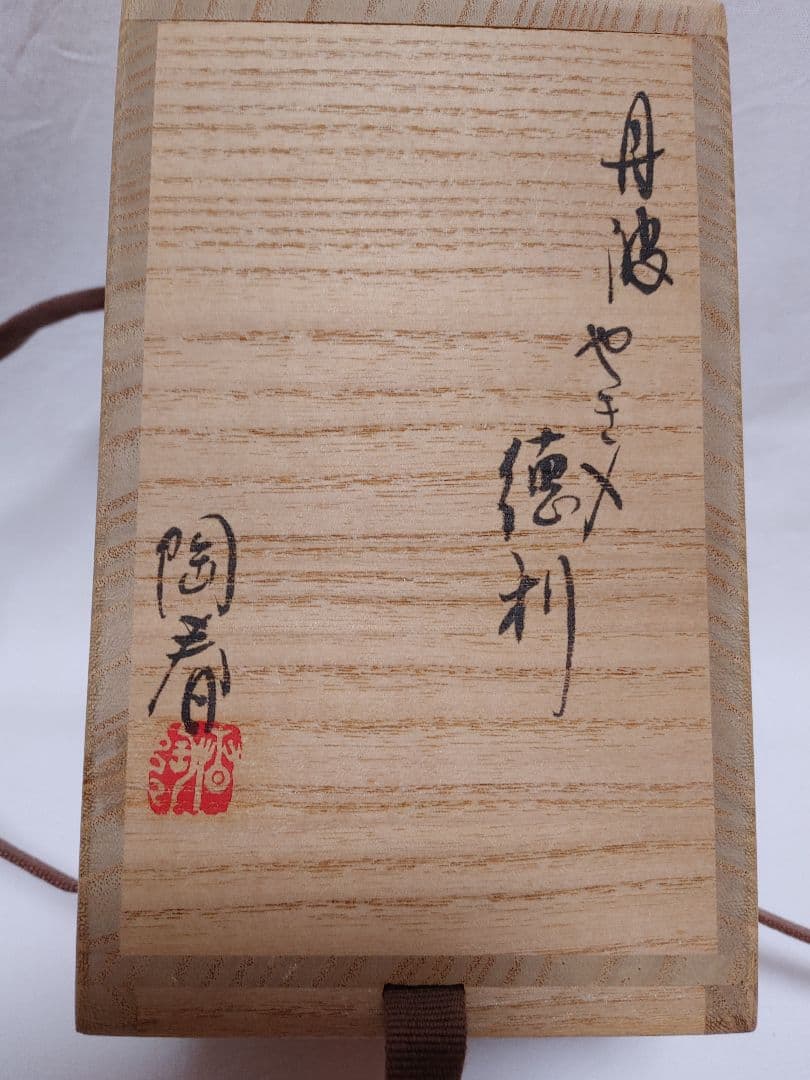 丹波やき〆
徳利
陶春